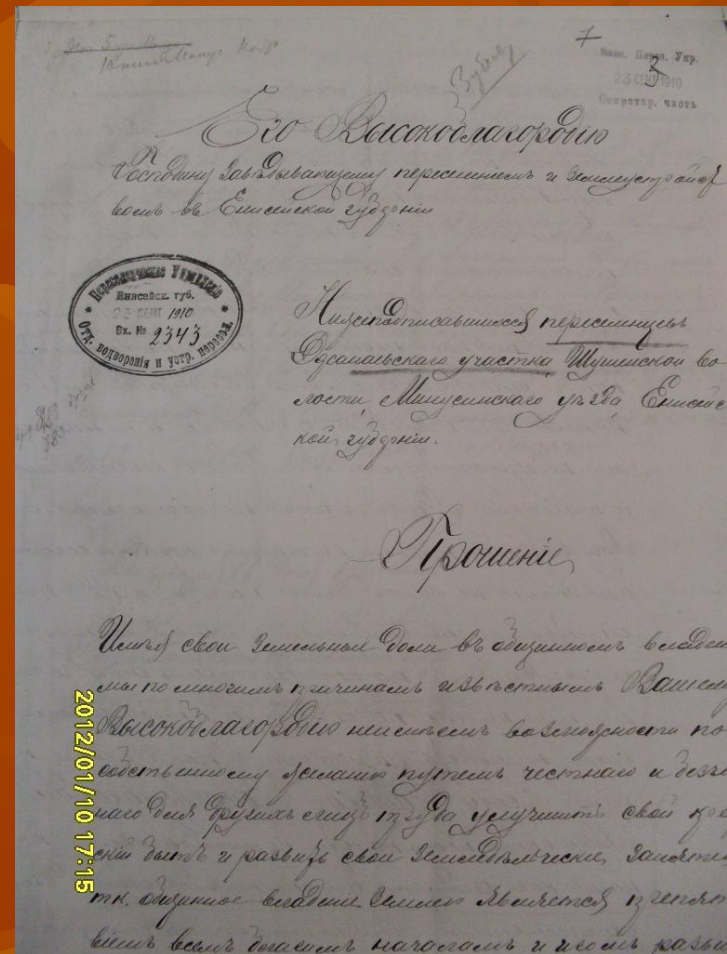 7
3
Енис. Перес. Упр.
23 СЕНТ 1910
Секретар. часть
Его Высокоблагородію
Господину Завѣдывающему переселеніемъ и Землеустройст
вомъ въ Енисейской губерніи
Переселенческое Управленіе
Енисейск. губ.
23 СЕНТ 1910
Вх. № 2343
Отд. водворенія и устр. пересел.
Нижеподписавшихся переселенцевъ
участка Шушенской во-
лости, Минусинскаго уѣзда Енисейс
кой губерніи.
Прошеніе
Имѣя свои земельныя доли въ общинномъ владѣн
мы по многимъ причинамъ извѣстнымъ Вашем
Высокоблагородію неимѣемъ возможности по
собственному желанію путемъ честнаго и
наго для другихъ труда улучшить свой
быть и развить свои Земледѣльческія занятія
тк. общинное владѣніе землею является
всемъ началамъ и
2012/01/10 17:15